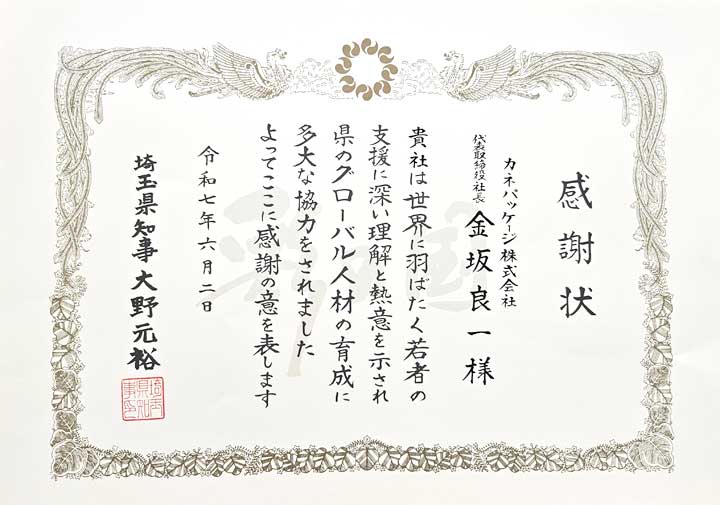 感謝状
カネパッケージ株式会社
代表取締役社長 金坂良一様
貴社は世界に羽ばたく若者の
支援に深い理解と熱意を示され
県のグローバル人材の育成に
多大な協力をされました
よってここに感謝の意を表します
令和七年六月二日
埼玉県知事 大野元裕
埼玉県知事印